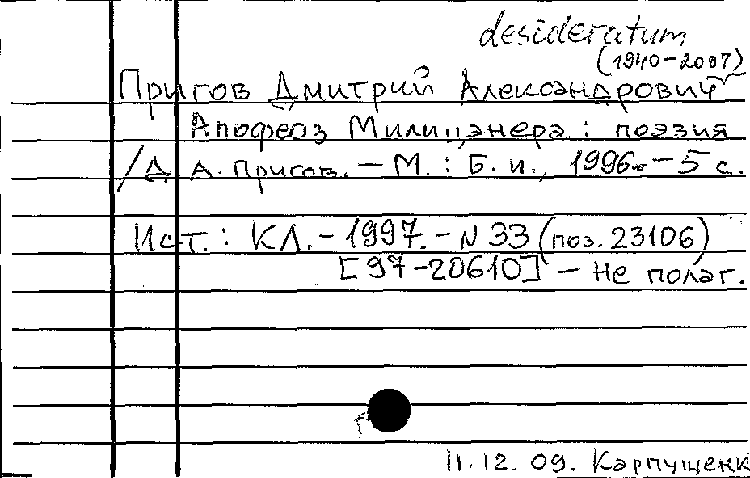 desideratum
(1940-2007)
Пригов Дмитрий Александрович
Апофеоз Милицанера : поэзия
/ Д. А. Пригов. – М. : Б. и., 1996. – 5 с.
Ист. : КЛ. – 1997. – N 33 (поз. 23106)
[97-20610] – Не полаг.
11.12.09. Карпущенк